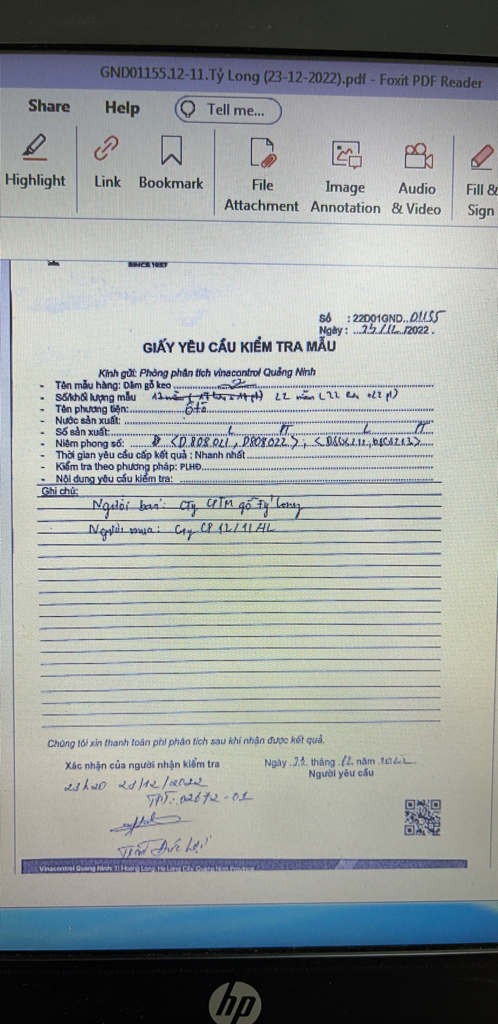 GND01155.12-11.Tỷ Long (23-12-2022).pdf - Foxit PDF Reader
Share Help Tell me...
Highlight Link Bookmark File Attachment Image Annotation Audio & Video Fill & Sign
SINCE 1957
Số : 22D01GND..01155
Ngày : ...23./.12../2022.
GIẤY YÊU CẦU KIỂM TRA MẪU
Kính gửi: Phòng phân tích vinacontrol Quảng Ninh
- Tên mẫu hàng: Dăm gỗ keo
- Số/khối lượng mẫu 22 mẫu
- Tên phương tiện: ôtô
- Nước sản xuất:
- Số sản xuất:
- Niêm phong số: D808022
- Thời gian yêu cầu cấp kết quả : Nhanh nhất
- Kiểm tra theo phương pháp: PLHĐ
- Nội dung yêu cầu kiểm tra:
Ghi chú:
Người bán: CTy CPTM gỗ Tỷ Long
Người mua: Cty CP 12/11 HL
Chúng tôi xin thanh toán phí phân tích sau khi nhận được kết quả.
Xác nhận của người nhận kiểm tra
Ngày .23. tháng .12. năm .2022
Người yêu cầu
23h20 23/12/2022
02672-01
Vinacontrol Quang Ninh: 11 Hoang Long, Ha Long City, Quang Ninh Province
hp